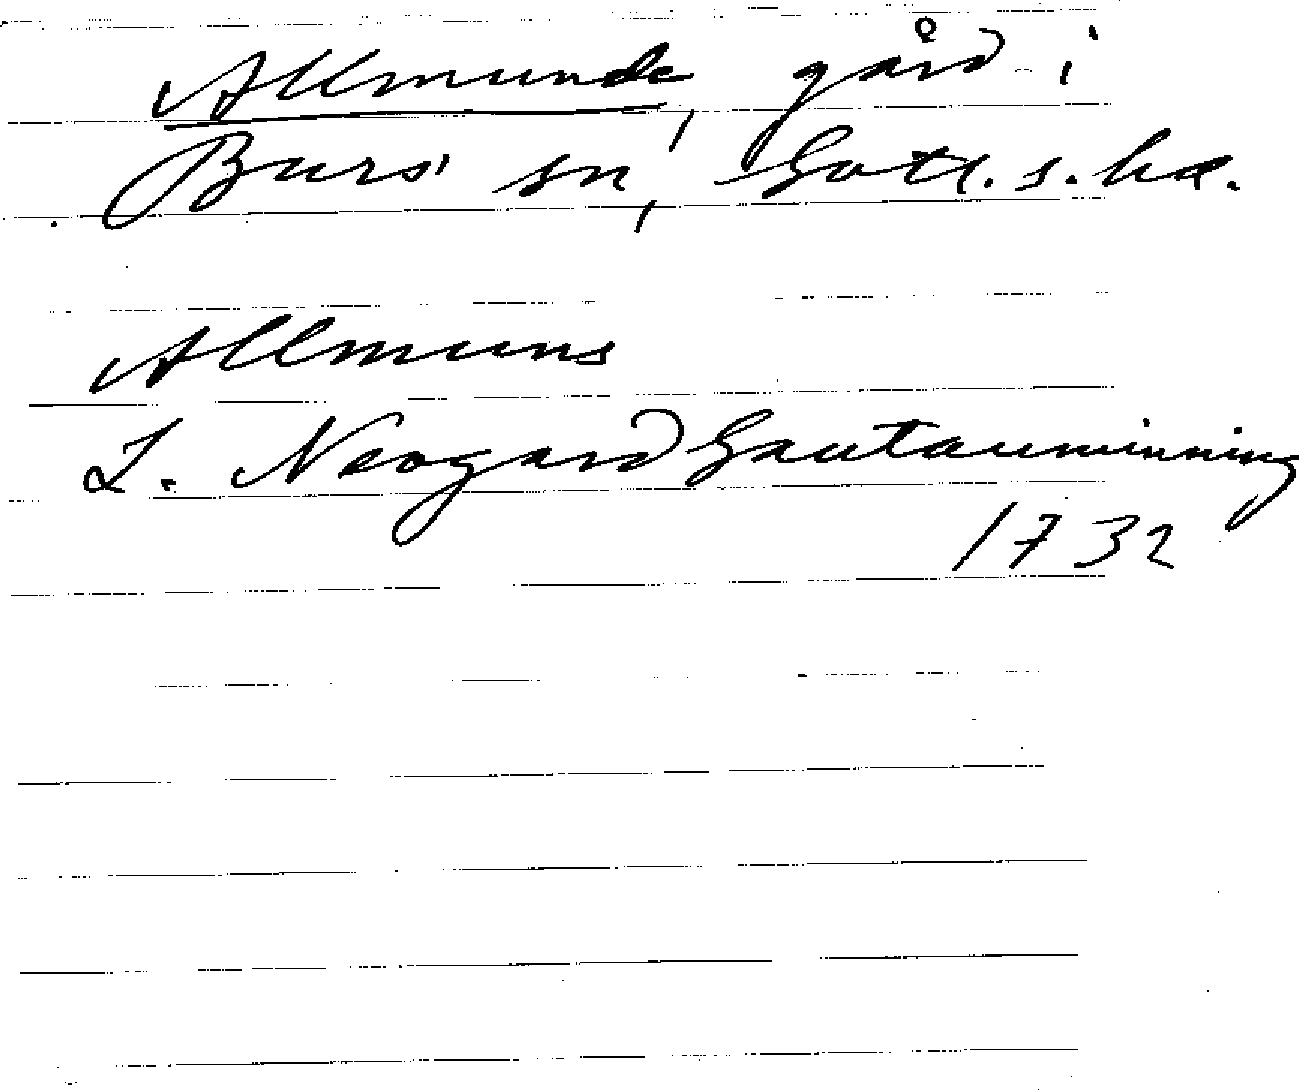 Allmunde, gård i
Burs' sn, Gotl. s. hd.
Allmuns
L. Neogard Gautauminning
1732